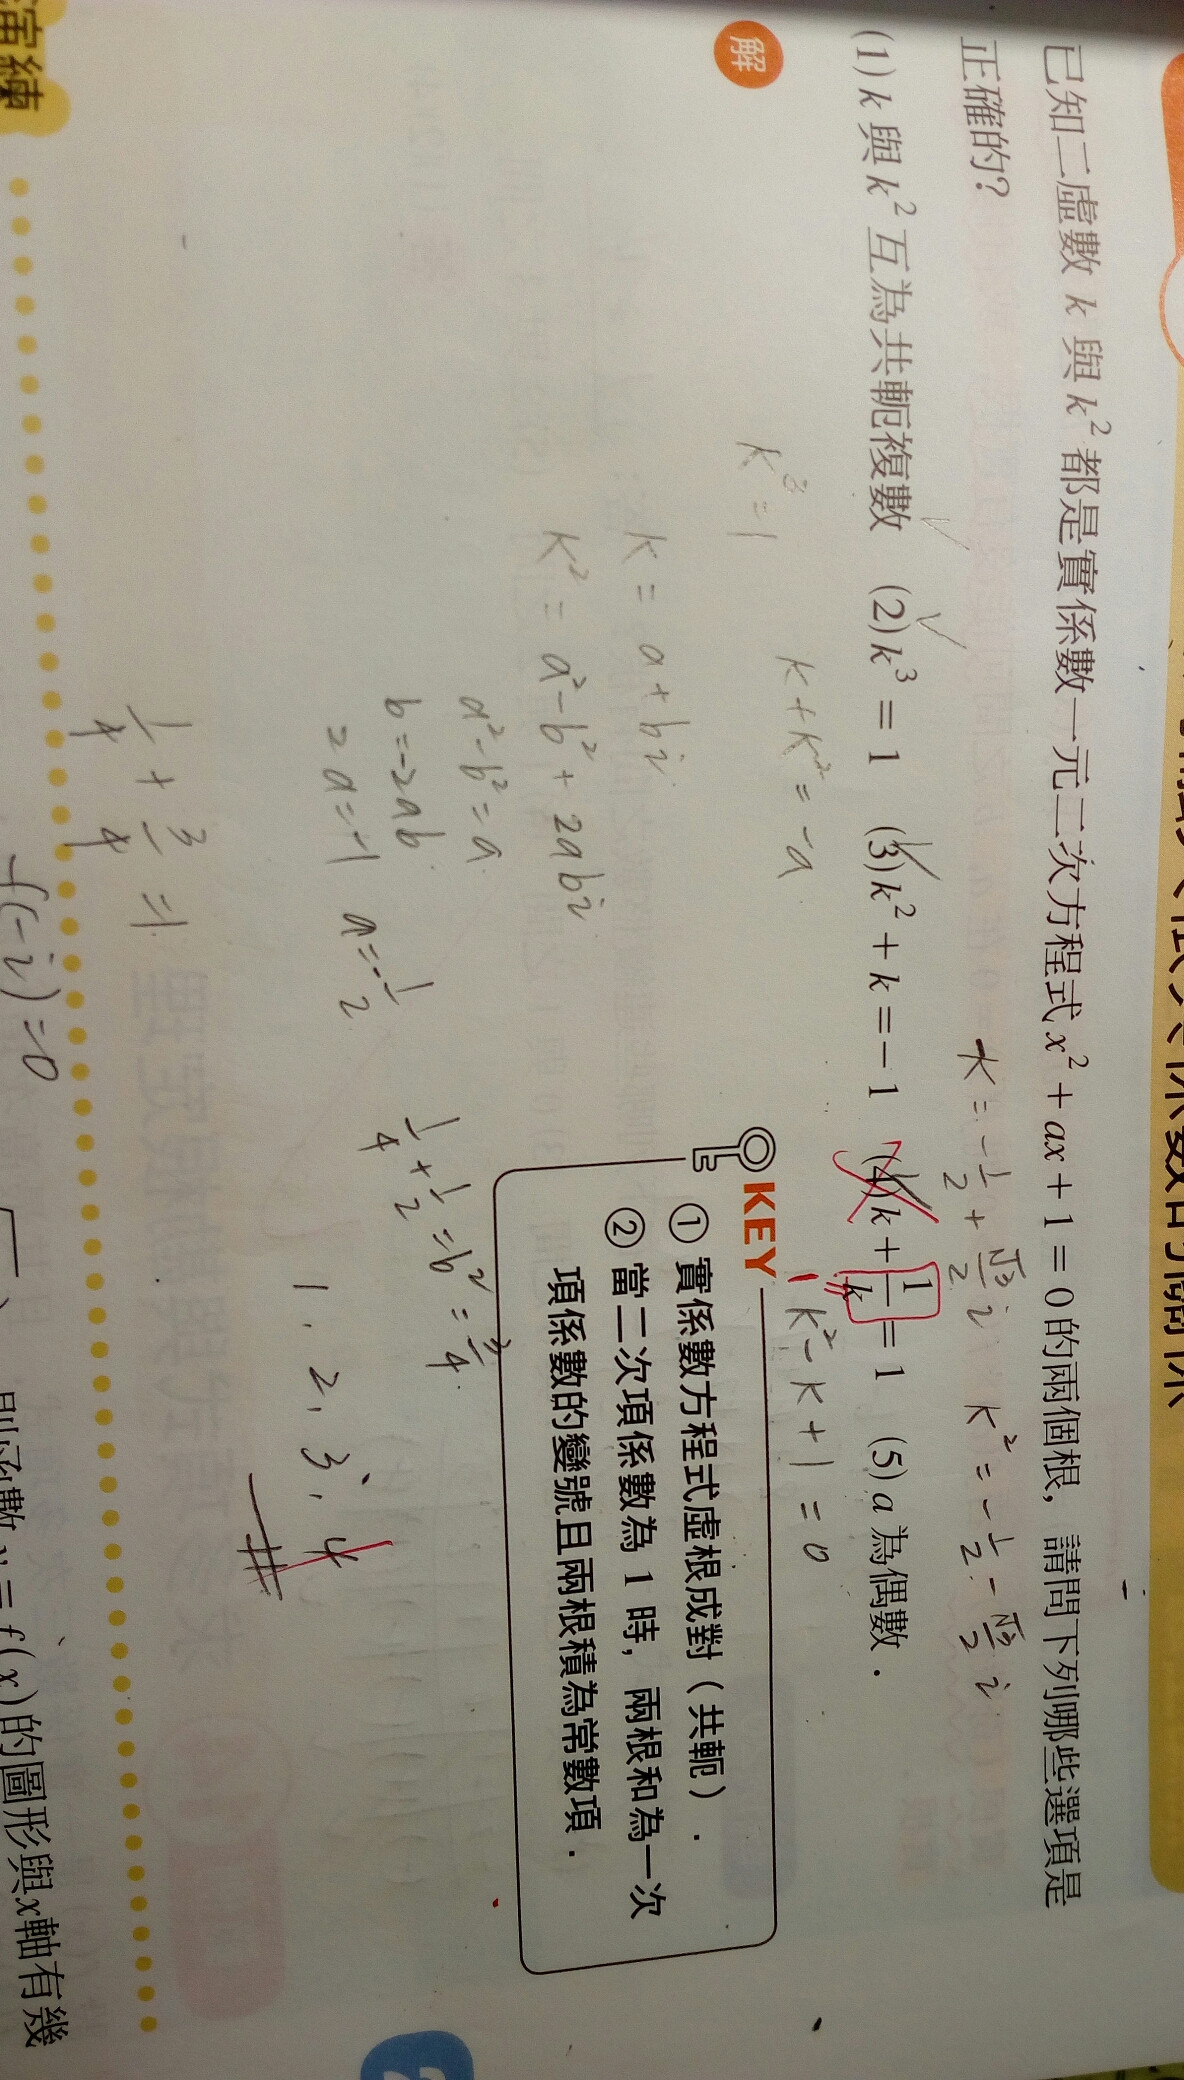 已知二虛數 k 與 k² 都是實係數一元二次方程式 x² + ax + 1 = 0 的兩個根，請問下列哪些選項是
正確的？
k = -1/2 + √3/2 i  k² = -1/2 - √3/2 i
(1) k 與 k² 互為共軛複數 (2) k³ = 1 (3) k² + k = -1 (4) k + 1/k = 1 (5) a 為偶數．
解
k + k² = -a
k² - k + 1 = 0
k³ = 1
KEY
① 實係數方程式虛根成對（共軛）．
② 當二次項係數為 1 時，兩根和為一次
項係數的變號且兩根積為常數項．
k = a + bi
k² = a² - b² + 2abi
a² - b² = a
b = -2ab
2a = -1 a = -1/2
1/4 + 1/2 = b² = 3/4
1, 2, 3, 4
1/4 + 3/4 = 1
演練
f(-i) = 0
則函數 y = f(x) 的圖形與 x 軸有幾